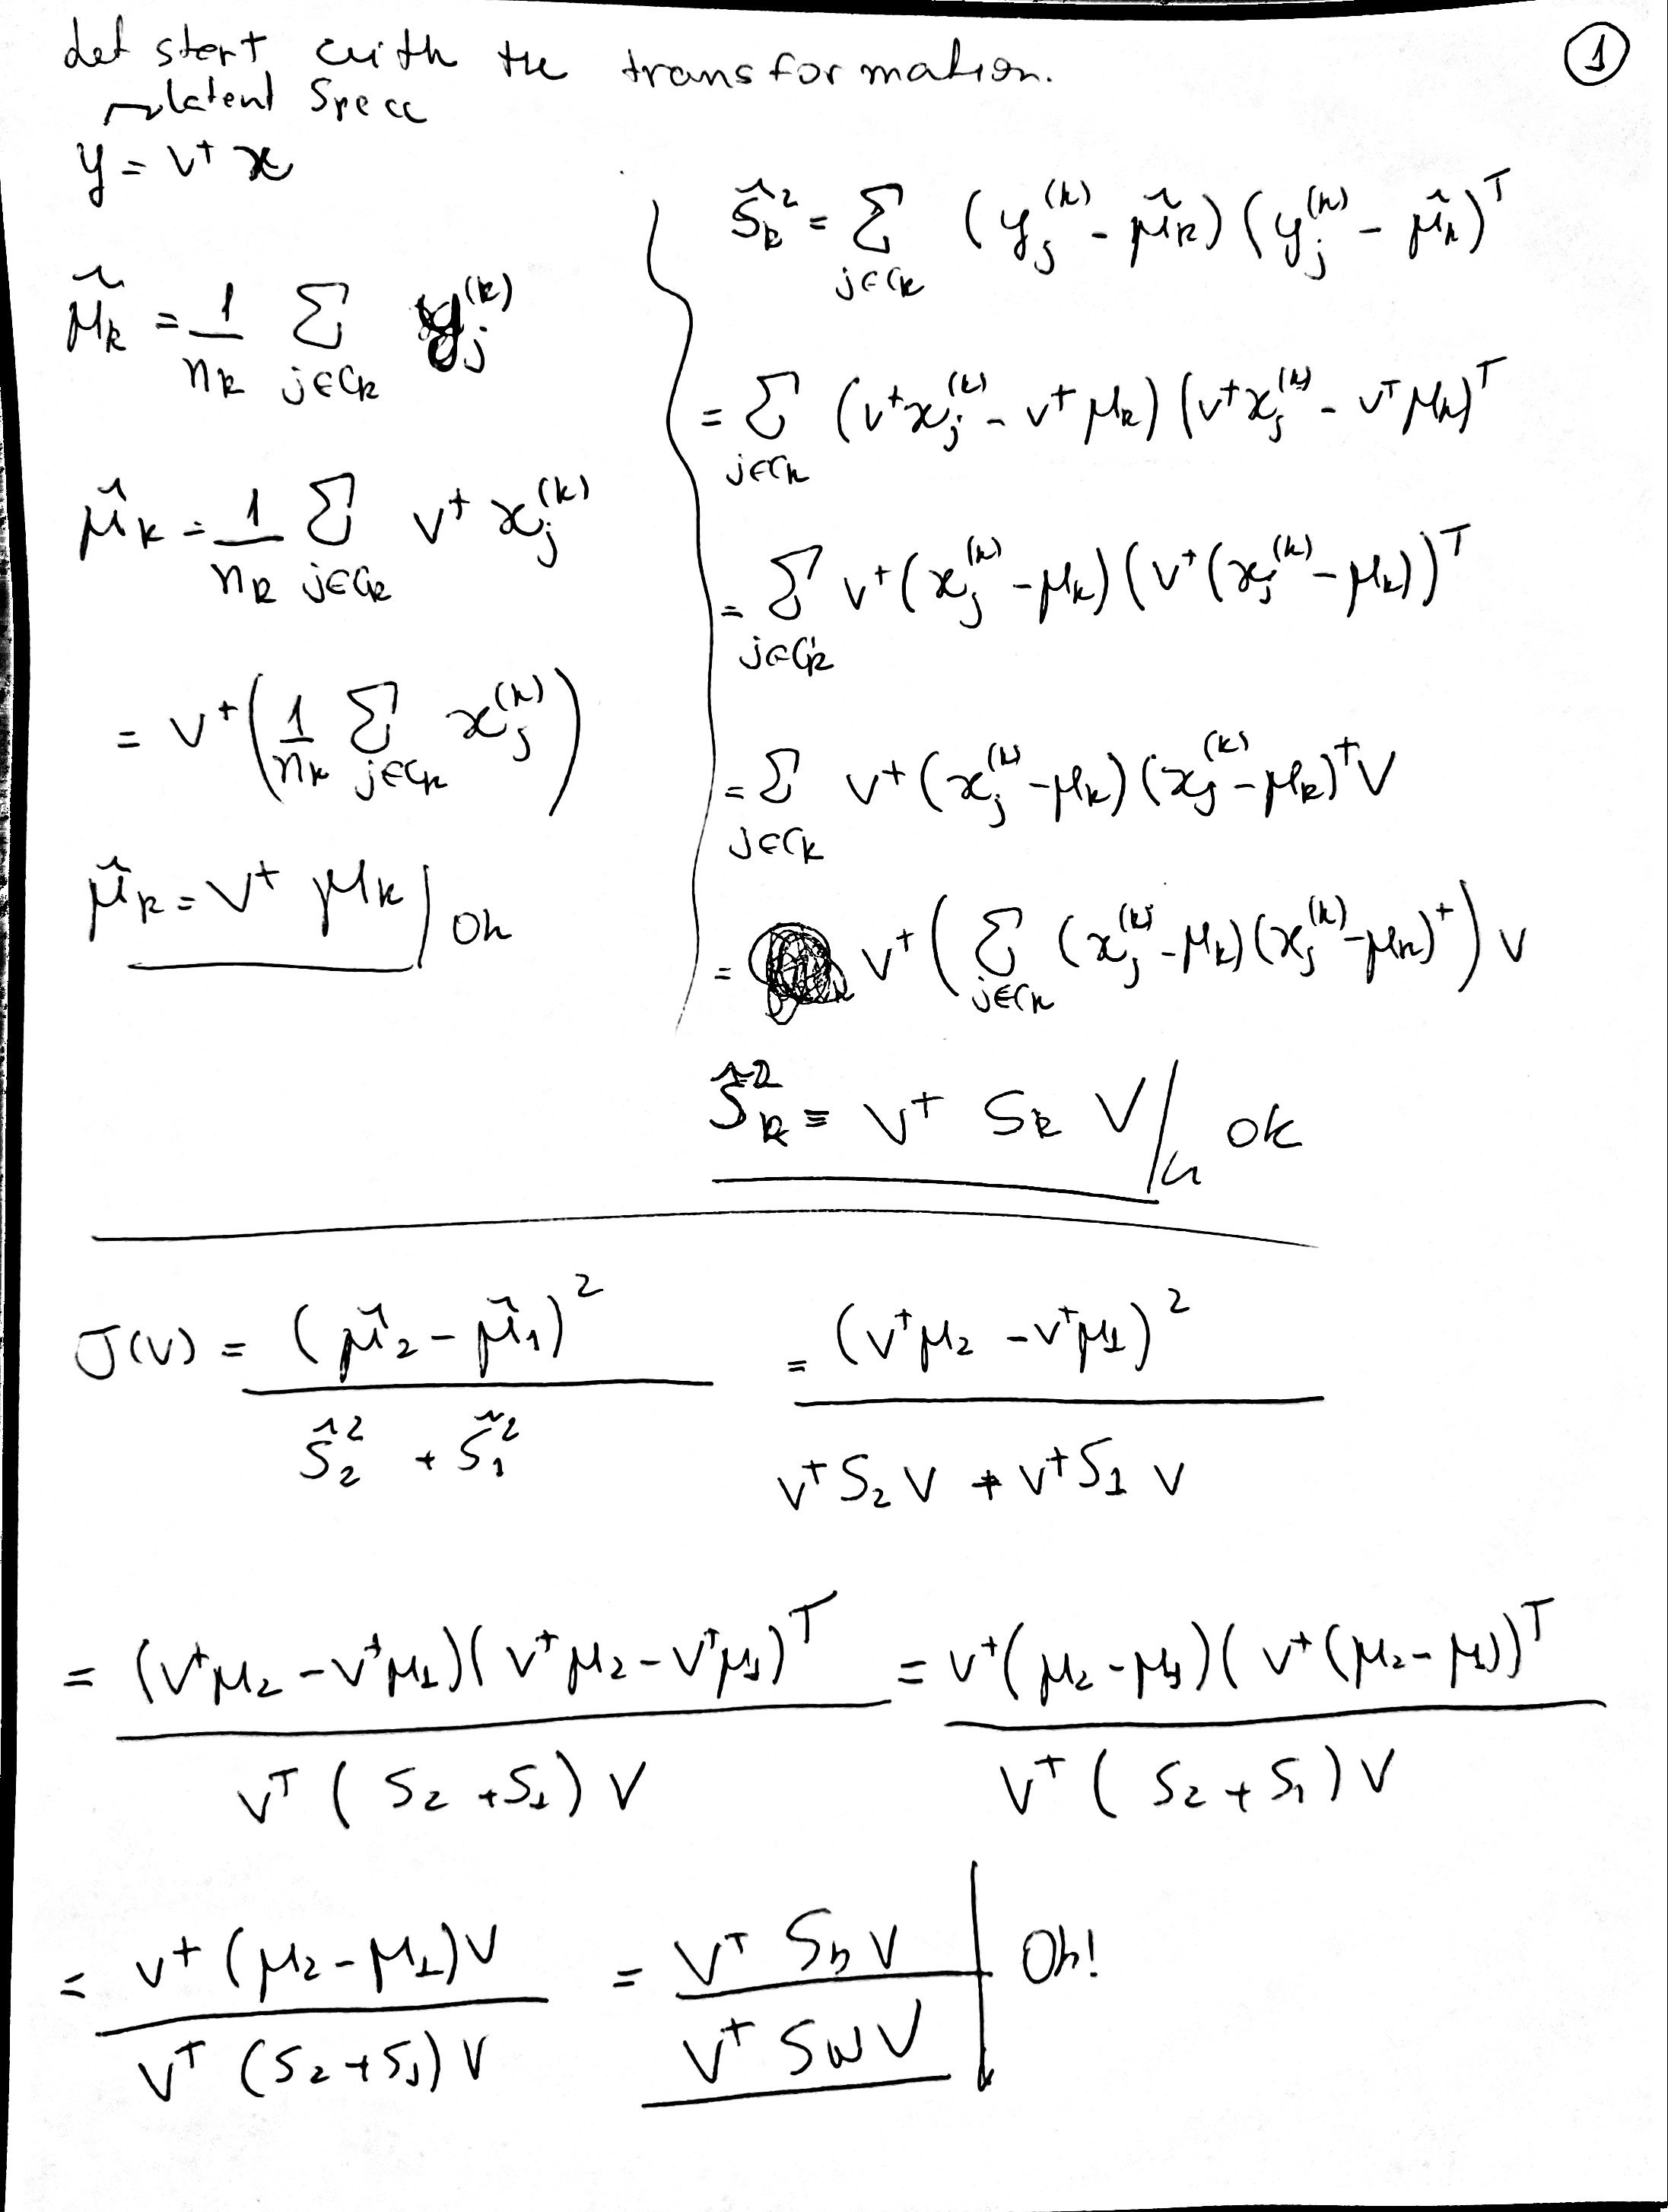 ①
Let start with the transformation.
latent space
y = v^T x
μ̃_k = 1/n_k Σ_{j∈C_k} y_j^{(k)}
μ̃_k = 1/n_k Σ_{j∈C_k} v^T x_j^{(k)}
= v^T ( 1/n_k Σ_{j∈C_k} x_j^{(k)} )
μ̃_k = v^T μ_k | Ok
S̃_k^2 = Σ_{j∈C_k} (y_j^{(k)} - μ̃_k) (y_j^{(k)} - μ̃_k)^T
= Σ_{j∈C_k} (v^T x_j^{(k)} - v^T μ_k) (v^T x_j^{(k)} - v^T μ_k)^T
= Σ_{j∈C_k} v^T (x_j^{(k)} - μ_k) (v^T (x_j^{(k)} - μ_k))^T
= Σ_{j∈C_k} v^T (x_j^{(k)} - μ_k) (x_j^{(k)} - μ_k)^T v
= v^T ( Σ_{j∈C_k} (x_j^{(k)} - μ_k) (x_j^{(k)} - μ_k)^T ) v
S̃_k^2 = v^T S_k v // ok
J(v) = (μ̃_2 - μ̃_1)^2 / (S̃_2^2 + S̃_1^2) = (v^T μ_2 - v^T μ_1)^2 / (v^T S_2 v + v^T S_1 v)
= (v^T μ_2 - v^T μ_1) (v^T μ_2 - v^T μ_1)^T / (v^T (S_2 + S_1) v) = v^T (μ_2 - μ_1) (v^T (μ_2 - μ_1))^T / (v^T (S_2 + S_1) v)
= v^T (μ_2 - μ_1) v / (v^T (S_2 + S_1) v) = v^T S_b v / (v^T S_W v) | Ok!